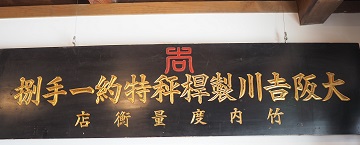 大阪𠮷川製桿秤特約一手捌
竹内度量衡店